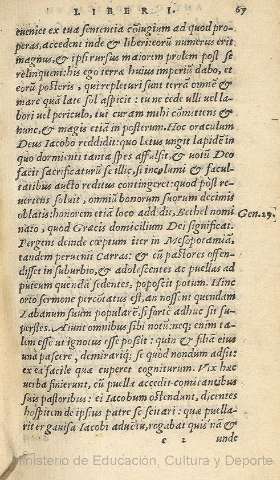 LIBER I. 67
eueniet ex tua sententia cõiugium ad quod pro-
peras, accedent inde & liberi: eorũ numerus erit
magnus, & ipsi rursus maiorem prolem post se
relinquent: his ego terræ huius imperiũ dabo, et
eorũ posteris, qui repleturi sunt terrã omnẽ &
mare quà late sol aspicit: tu ne cede ulli uel la-
bori uel periculo, tui curam mihi cõmittens &
nunc, & magis etiã in posterum. Hoc oraculum
Deus Iacobo reddidit: quo lætus ungit lapidẽ in
quo dormienti tanta spes affulsit, & uotũ Deo
facit sacrificaturũ se illic, si incolumi & facul-
tatibus aucto reditus contingeret: quod pòst re-
uersus soluit, omniũ bonorum suorum decimis
oblatis: honorem etiã loco addidit, Bethel nomi
nato, quod Græcis domicilium Dei significat.
Gen. 29.
Pergens deinde cœptum iter in Mesopotamiã,
tandem peruenit Carras: & cũ pastores offen-
disset in suburbio, & adolescentes ac puellas ad
puteum quendã sedentes, poposcit potum. Hinc
orto sermone percõtatus est, an nossent quendam
Labanum suum popularẽ, si fortè adhuc sit su-
perstes. Aiunt omnibus sibi notũ: neq; enim ta-
lem esse ut ignotus esse possit: quin & filiã eius
unà pascere, demirariq; se quòd nondum adsit:
ex ea facile quæ cuperet cogniturum. Vix hæc
uerba finierunt, cũ puella accedit comitantibus
suis pastoribus: ei Iacobum ostendunt, dicentes
hospitem de ipsius patre sc scitari: quæ puella-
riter gauisa Iacobi aduẽtu, rogabat quis nã &
e 2 unde
Ministerio de Educación, Cultura y Deporte